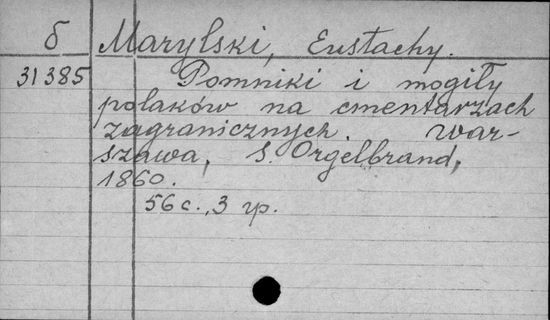 б Marylski, Eustachy.
31385 Pomniki i mogiły
polaków na cmentarzach
zagranicznych. War-
szawa, S. Orgelbrand,
1860.
56 с., 3 гр.